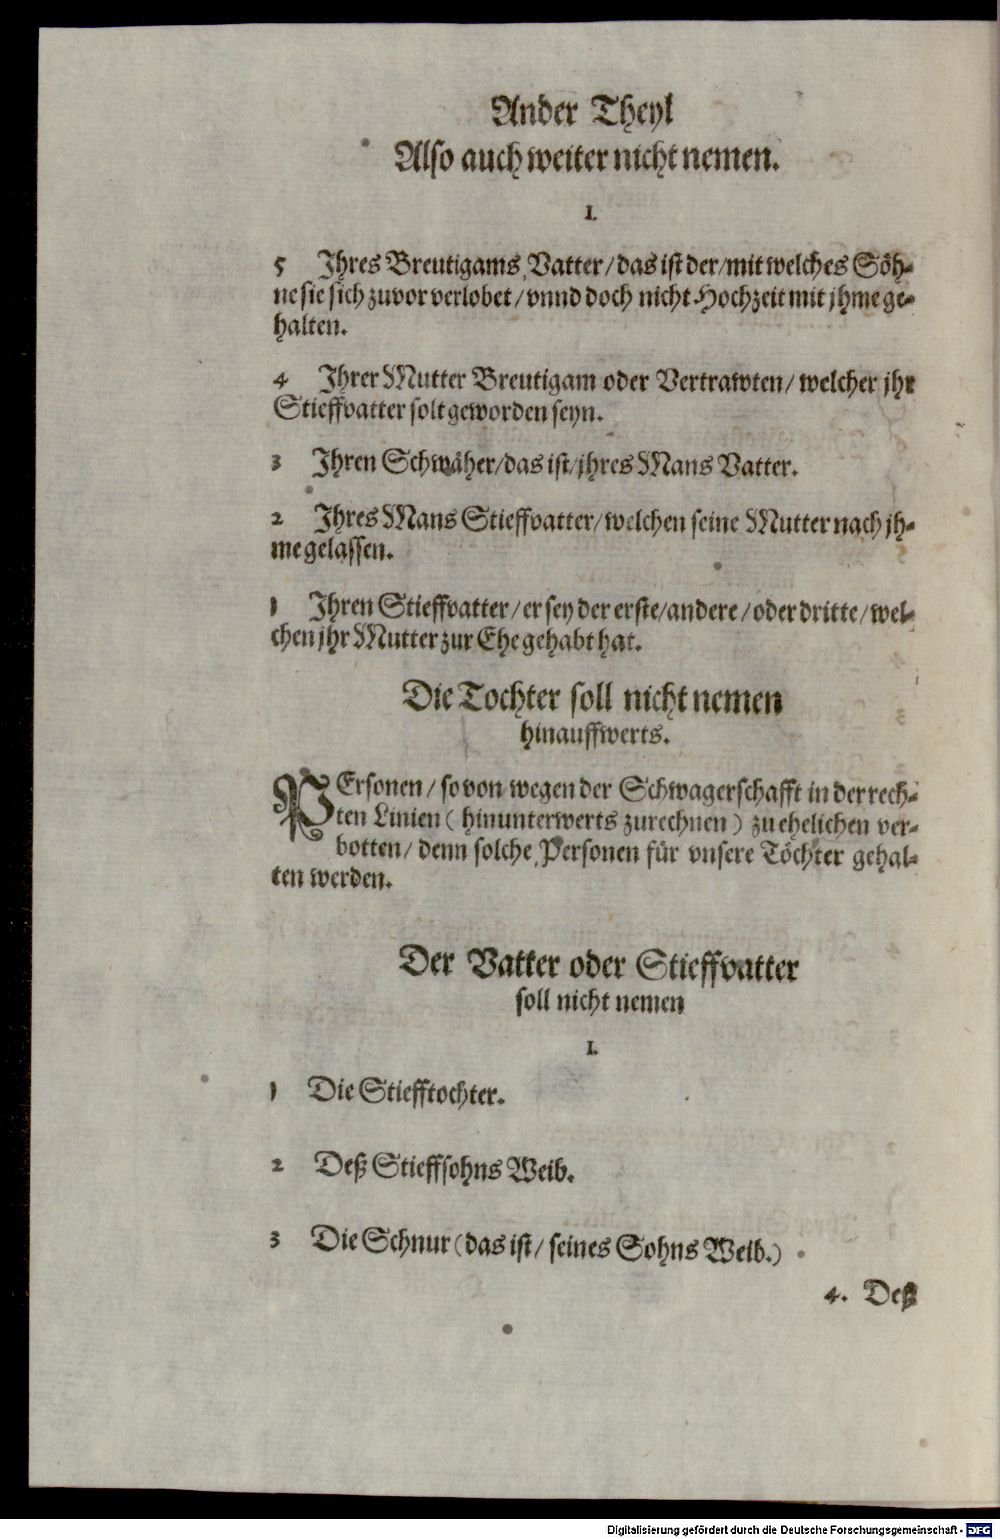 Ander Theyl
Also auch weiter nicht nemen.
I.
5 Ihres Breutigams Vatter/ das ist der/ mit welches Söh-
ne sie sich zuvor verlobet/ vnnd doch nicht Hochzeit mit jhme ge-
halten.
4 Ihrer Mutter Breutigam oder Vertrawten/ welcher jhr
Stieffvatter solt geworden seyn.
3 Ihren Schwäher/ das ist/ jhres Mans Vatter.
2 Ihres Mans Stieffvatter/ welchen seine Mutter nach jh-
me gelassen.
1 Ihren Stieffvatter/ er sey der erste/ andere/ oder dritte/ wel-
chen jhr Mutter zur Ehe gehabt hat.
Die Tochter soll nicht nemen
hinauffwerts.
PErsonen/ so von wegen der Schwagerschafft in der rech-
ten Linien ( hinunterwerts zurechnen ) zu ehelichen ver-
botten/ denn solche Personen für vnsere Töchter gehal-
ten werden.
Der Vatter oder Stieffvatter
soll nicht nemen
I.
1 Die Stiefftochter.
2 Deß Stieffsohns Weib.
3 Die Schnur (das ist/ seines Sohns Weib.)
4. Deß
Digitalisierung gefördert durch die Deutsche Forschungsgemeinschaft - DFG